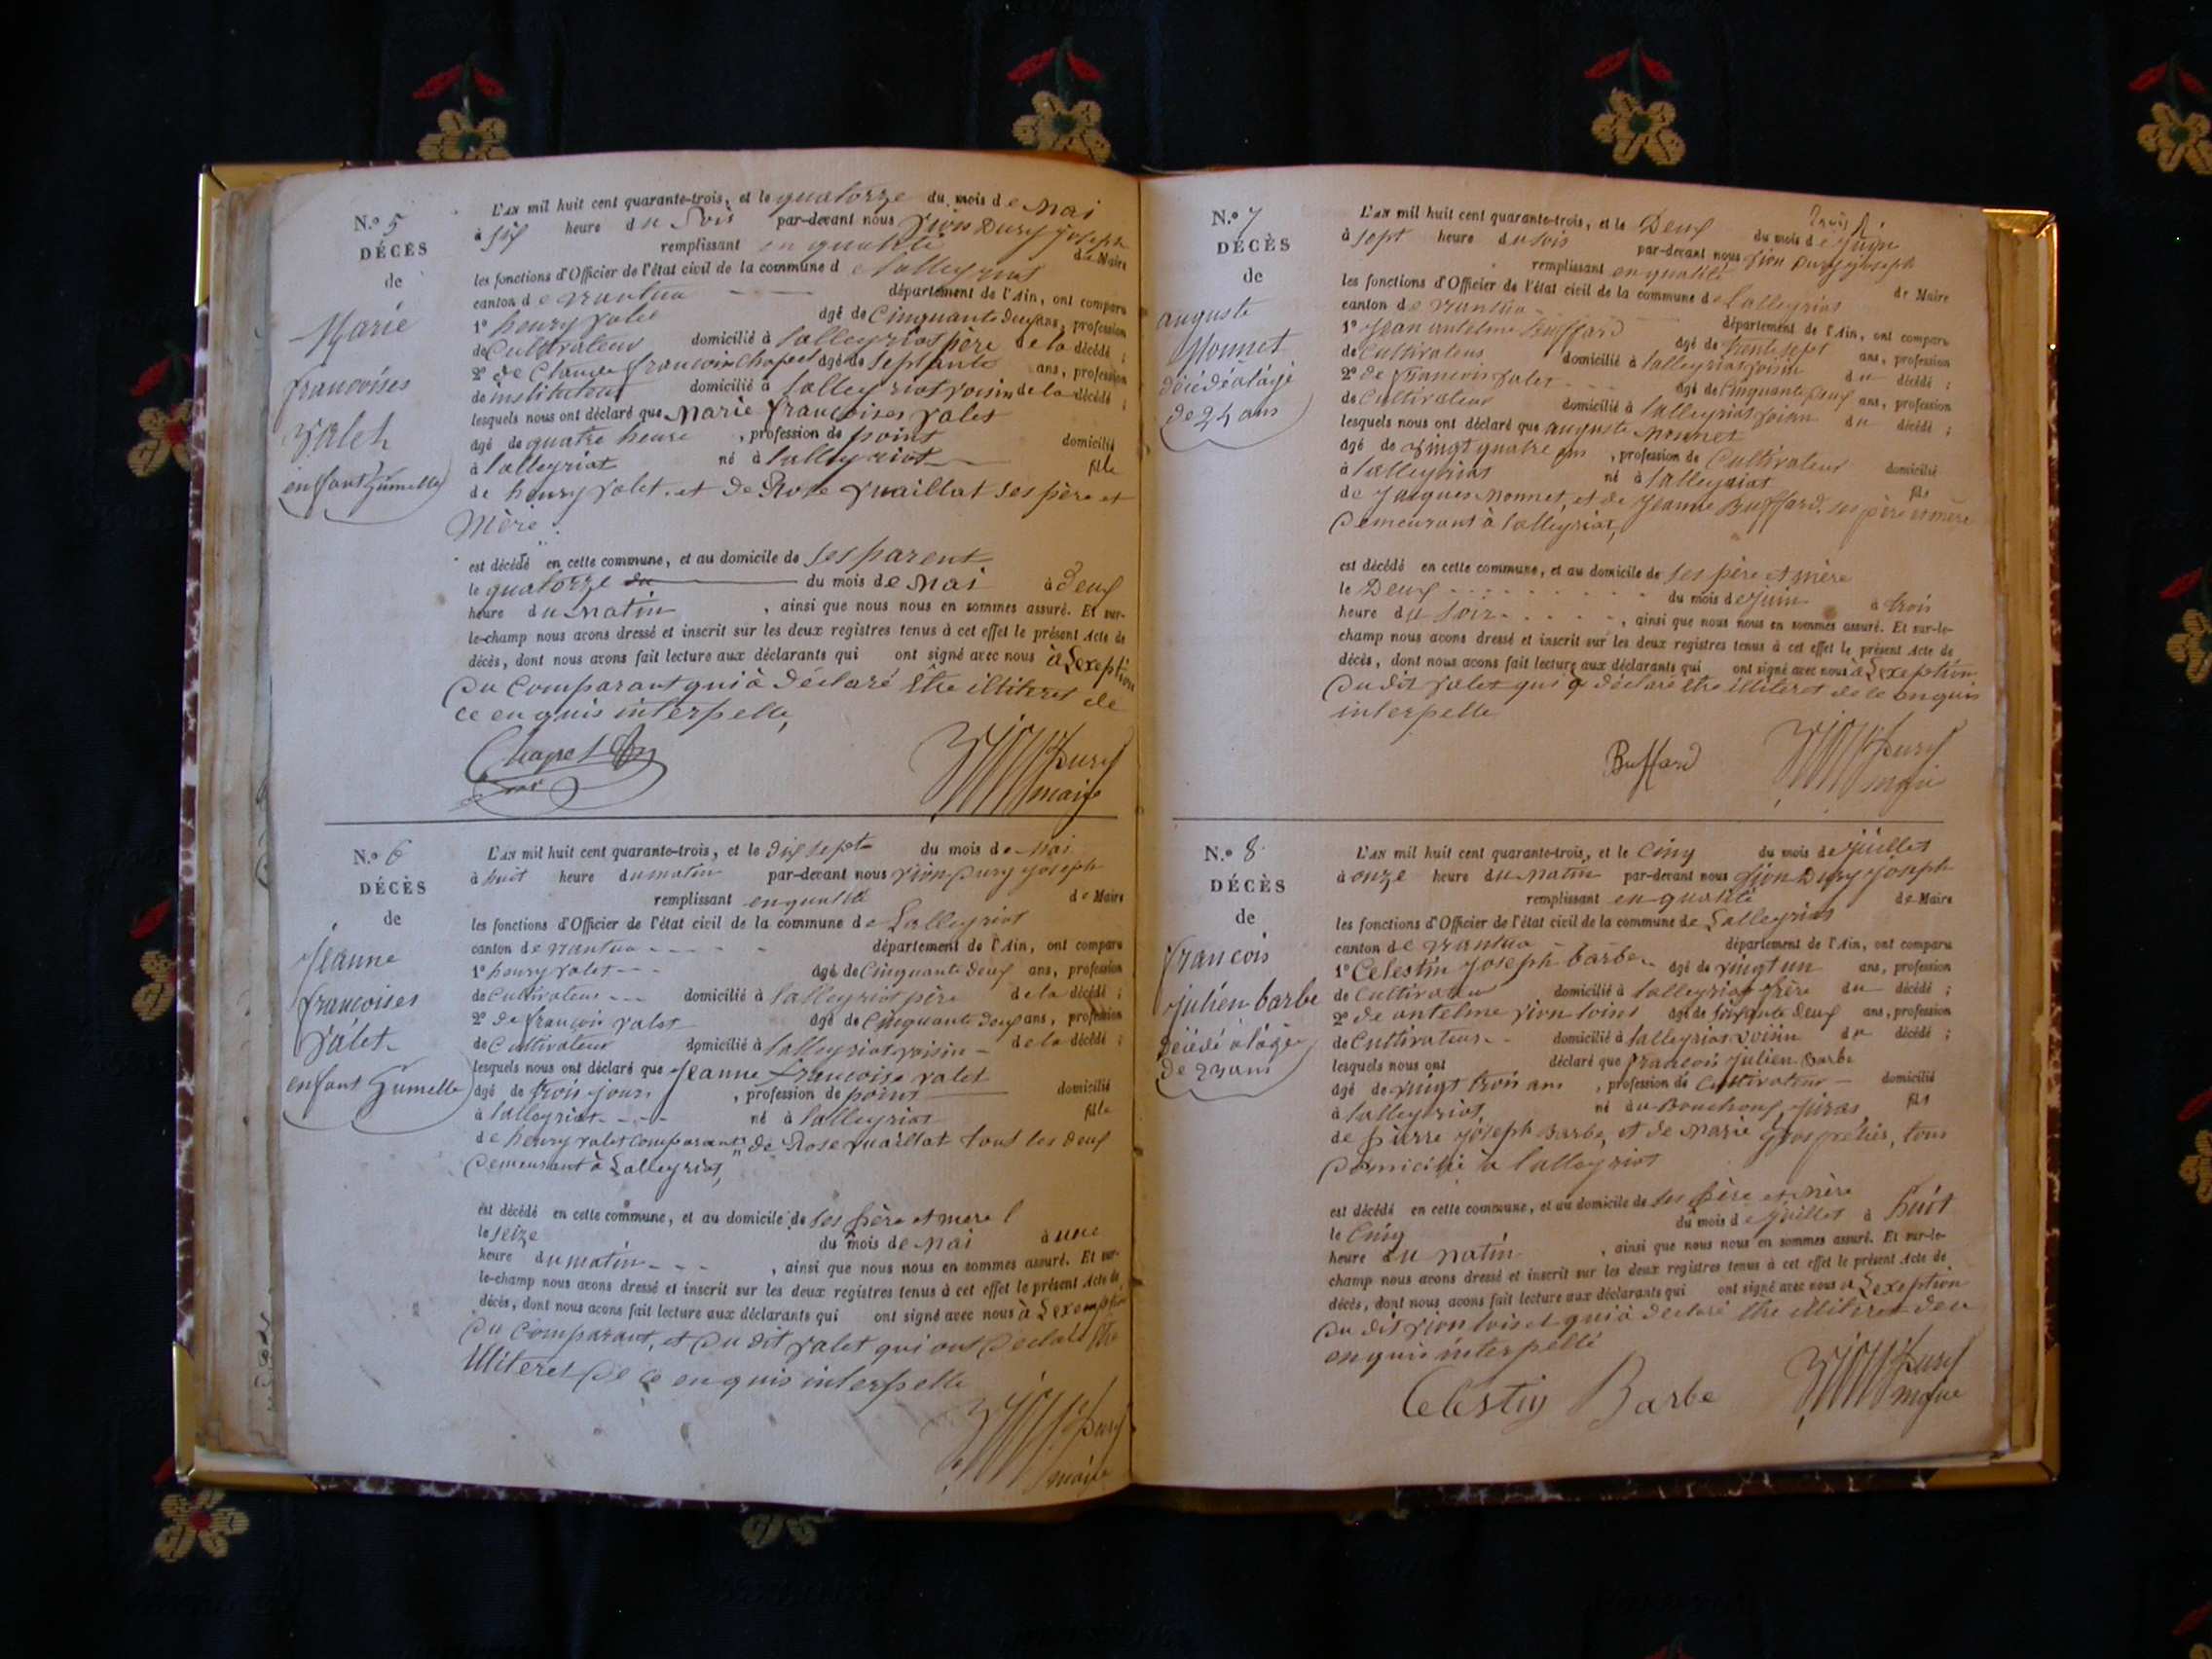 N.° 5
DÉCÈS
de
Marie
francoises
Valet
enfant Gumelle
L'AN mil huit cent quarante-trois, et le quatorze du mois de Mai
à six heure du Soir par-devant nous Vion Dury Joseph
remplissant en qualité de Maire
les fonctions d'Officier de l'état civil de la commune de lalleyriat
canton de Nantua département de l'Ain, ont comparu
1° henry Valet âgé de Cinquante deux ans, profession
de Cultivateur domicilié à lalleyriat père de la décédé ;
2° de Claude francois Chapel âgé de Septante ans, profession
de instituteur domicilié à lalleyriat voisin de la décédé ;
lesquels nous ont déclaré que Marie françoises Valet
âgé de quatre heure , profession de point domicilié
à lalleyriat né à lalleyriat fille
de henry Valet et de Rose Vuaillat ses père et
Mère
est décédé en cette commune, et au domicile de ses parent
le quatorze du mois de Mai à deux
heure du Matin , ainsi que nous nous en sommes assuré. Et sur-
le-champ nous avons dressé et inscrit sur les deux registres tenus à cet effet le présent Acte de
décès, dont nous avons fait lecture aux déclarants qui ont signé avec nous à Lexeption
Du Comparant qui à Déclaré Etre illiteret de
ce enquis interpelle,
Chapel
Dury
maire
N.° 6
DÉCÈS
de
Jeanne
françoises
Valet
enfant Gumelle
L'AN mil huit cent quarante-trois, et le dix sept du mois de Mai
à huit heure du matin par-devant nous Vion Dury Joseph
remplissant en qualité de Maire
les fonctions d'Officier de l'état civil de la commune de Lalleyriat
canton de Nantua département de l'Ain, ont comparu
1° henry Valet âgé de Cinquante deux ans, profession
de Cultivateur domicilié à lalleyriat père de la décédé ;
2° de françois Valet âgé de Cinquante deux ans, profession
de Cultivateur domicilié à lalleyriat voisin de la décédé ;
lesquels nous ont déclaré que Jeanne françoise Valet
âgé de trois jours , profession de point domicilié
à lalleyriat né à lalleyriat fille
de henry Valet Comparant de Rose Vuaillat tout les deux
Demeurant à Lalleyriat,
est décédé en cette commune, et au domicile de ses père et mere
le seize du mois de Mai à une
heure du matin , ainsi que nous nous en sommes assuré. Et sur-
le-champ nous avons dressé et inscrit sur les deux registres tenus à cet effet le présent Acte de
décès, dont nous avons fait lecture aux déclarants qui ont signé avec nous à
Du Comparant, et Du dit Valet qui ont Déclaré Etre
illiteret De ce enquis interpelle
Dury
maire
N.° 7
DÉCÈS
de
auguste
Monnet
décédé a lâge
de 24 ans
L'AN mil huit cent quarante-trois, et le Deux du mois de Juin
à sept heure du soir par-devant nous Vion Dury Joseph
remplissant en qualité de Maire
les fonctions d'Officier de l'état civil de la commune de lalleyriat
canton de Nantua département de l'Ain, ont comparu
1° Jean antelme Buffard âgé de trente sept ans, profession
de Cultivateur domicilié à lalleyriat voisin du décédé ;
2° de François Valet âgé de Cinquante deux ans, profession
de Cultivateur domicilié à lalleyriat voisin du décédé ;
lesquels nous ont déclaré que auguste Monnet
âgé de vingt quatre ans , profession de Cultivateur domicilié
à lalleyriat né à lalleyriat fils
de Jacques Monnet, et de Jeanne Buffard ses père et mère
Demeurant à lalleyriat,
est décédé en cette commune, et au domicile de ses père et mère
le Deux du mois de Juin à trois
heure du soir , ainsi que nous nous en sommes assuré. Et sur-le-
champ nous avons dressé et inscrit sur les deux registres tenus à cet effet le présent Acte de
décès, dont nous avons fait lecture aux déclarants qui ont signé avec nous à Lexeption
Du dit Valet qui a déclaré Etre illiteret de ce enquis
interpelle
Buffard
Dury
maire
N.° 8
DÉCÈS
de
francois
Julien barbe
décédé a lâge
de 23 ans
L'AN mil huit cent quarante-trois, et le Cinq du mois de Juillet
à onze heure du Matin par-devant nous Vion Dury Joseph
remplissant en qualité de Maire
les fonctions d'Officier de l'état civil de la commune de Lalleyriat
canton de Nantua département de l'Ain, ont comparu
1° Celestin Joseph barbe âgé de vingt un ans, profession
de Cultivateur domicilié à lalleyriat frère du décédé ;
2° de antelme Vion loisel âgé de soixante deux ans, profession
de Cultivateur domicilié à lalleyriat voisin du décédé ;
lesquels nous ont déclaré que francois Julien Barbe
âgé de vingt trois ans , profession de Cultivateur domicilié
à lalleyriat né au Bouchoux, Juras, fils
de pierre Joseph Barbe, et de Marie Grospélier, tous
Domicilié à lalleyriat
est décédé en cette commune, et au domicile de ses père et mère
le Cinq du mois de Juillet à huit
heure du Matin , ainsi que nous nous en sommes assuré. Et sur-le-
champ nous avons dressé et inscrit sur les deux registres tenus à cet effet le présent Acte de
décès, dont nous avons fait lecture aux déclarants qui ont signé avec nous à Lexeption
Du dit Vion loisel qui à déclaré Etre illiteret de
enquis interpellé
Celestin Barbe
Dury
maire